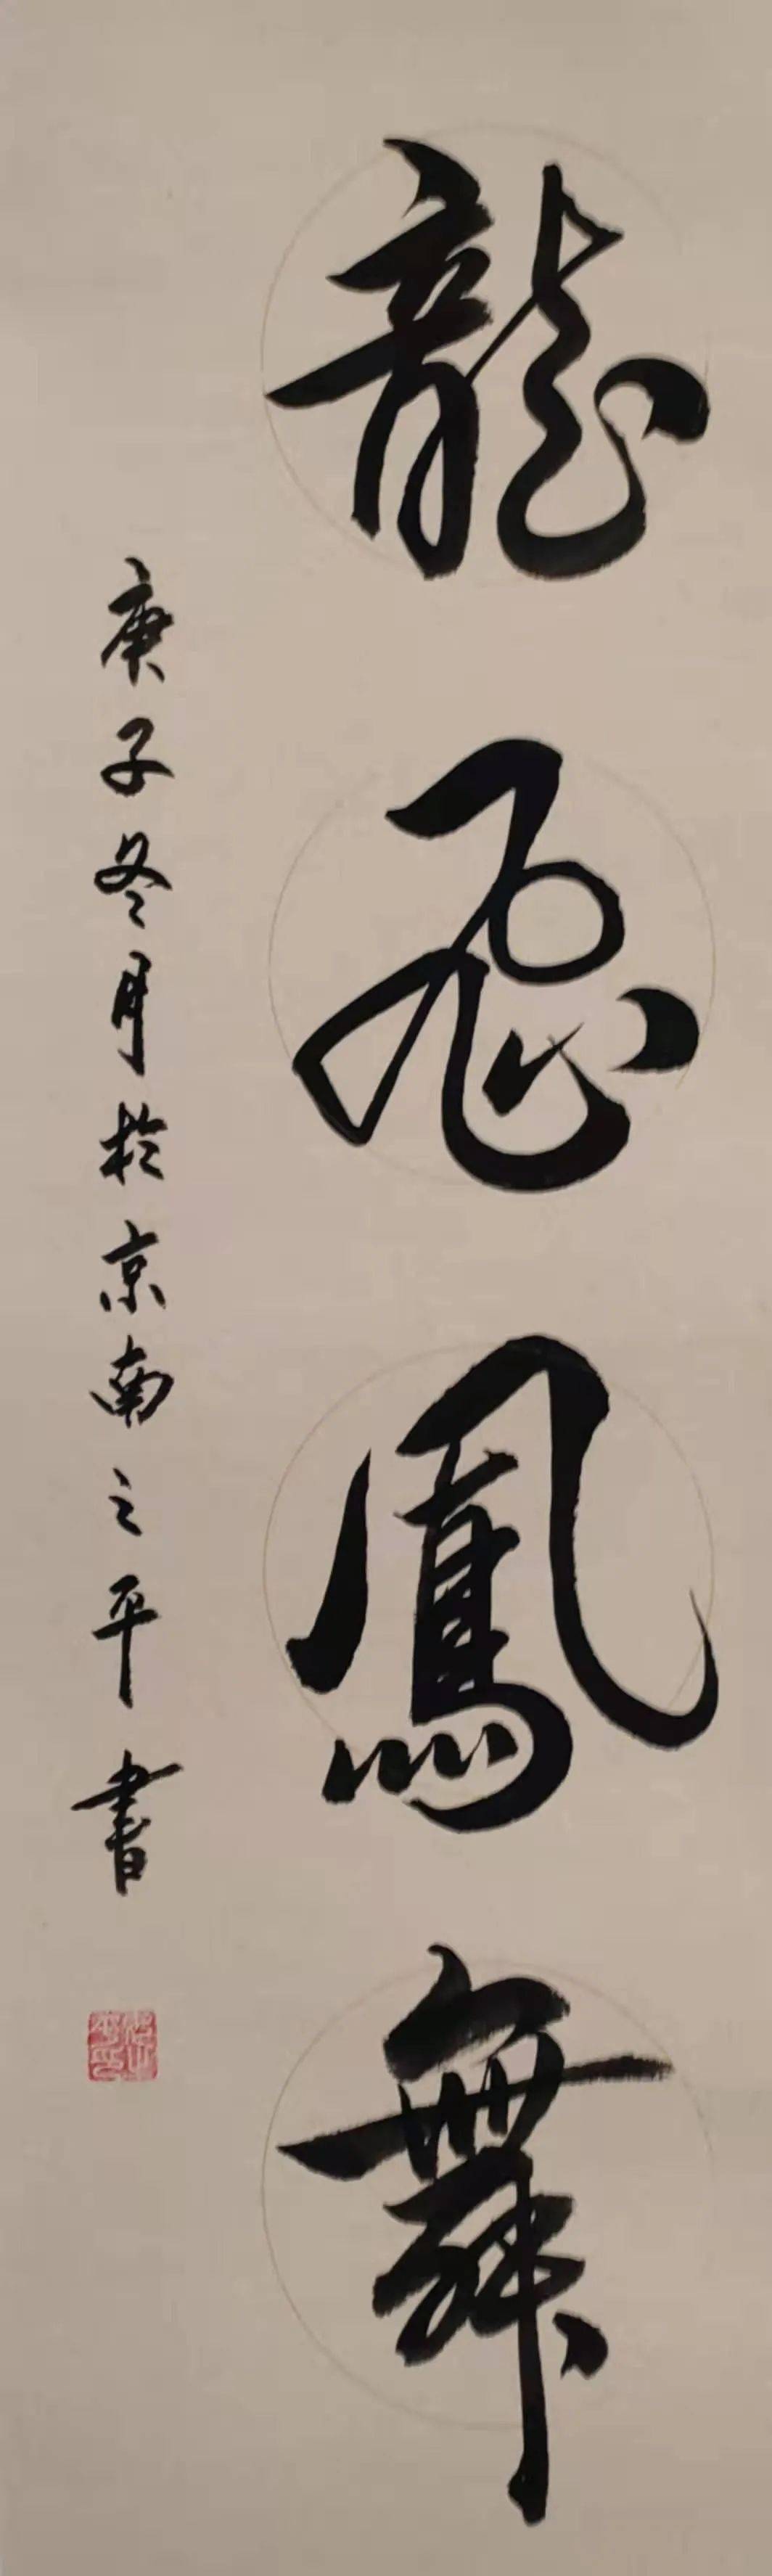 龍飛鳳舞
庚子冬月於京南之平書